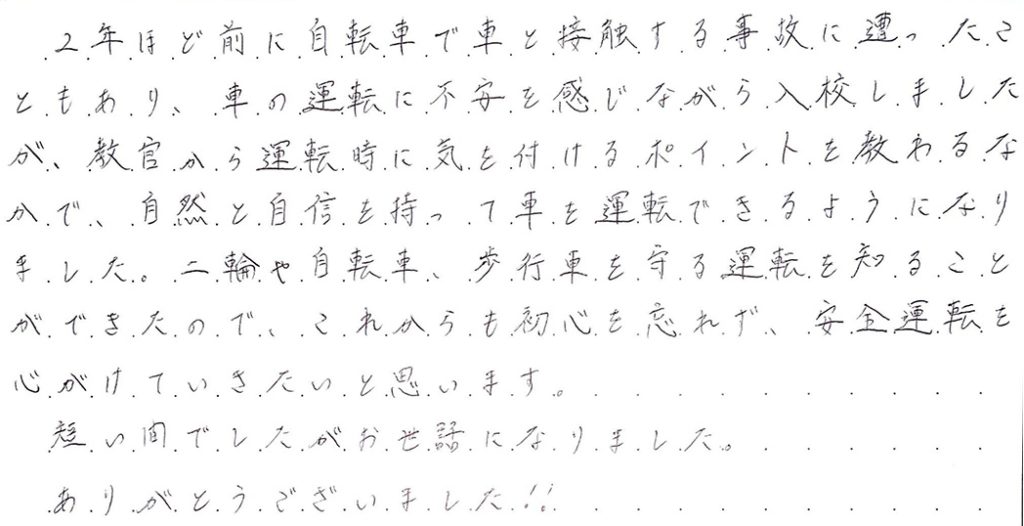 2年ほど前に自転車で車と接触する事故に遭ったこ
ともあり、車の運転に不安を感じながら入校しました
が、教官から運転時に気を付けるポイントを教わるな
かで、自然と自信を持って車を運転できるようになり
ました。二輪や自転車、歩行車を守る運転を知ること
ができたので、これからも初心を忘れず、安全運転を
心がけていきたいと思います。
短い間でしたがお世話になりました。
ありがとうございました!!